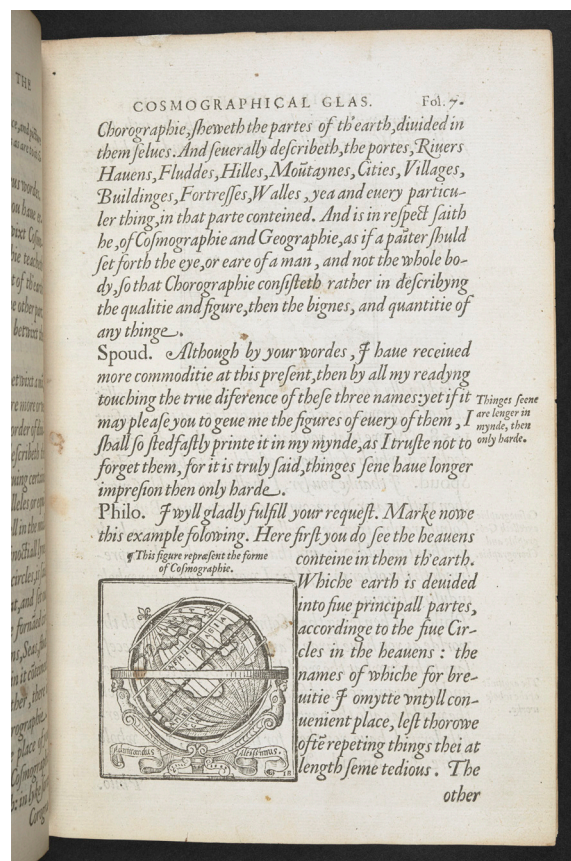 THE
COSMOGRAPHICAL GLAS. Fol. 7.
Chorographie, ſheweth the partes of th'earth, diuided in
them ſelues. And ſeuerally deſcribeth, the portes, Riuers
Hauens, Fluddes, Hilles, Moũtaynes, Cities, Villages,
Buildinges, Fortreſſes, Walles, yea and euery particu-
ler thing, in that parte conteined. And is in reſpect ſaith
he, of Coſmographie and Geographie, as if a paĩter ſhuld
ſet forth the eye, or eare of a man, and not the whole bo-
dy, ſo that Chorographie conſiſteth rather in deſcribyng
the qualitie and figure, then the bignes, and quantitie of
any thinge.
Spoud. Although by your wordes, I haue receiued
more commoditie at this preſent, then by all my readyng
touching the true diference of theſe three names: yet if it
may pleaſe you to geue me the figures of euery of them, I
ſhall ſo ſtedfaſtly printe it in my mynde, as I truſte not to
forget them, for it is truly ſaid, thinges ſene haue longer
impreſion then only harde.
Thinges ſeene
are lenger in
mynde, then
only harde.
Philo. I wyll gladly fulfill your requeſt. Marke nowe
this example folowing. Here firſt you do ſee the heauens
¶ This figure repræſent the forme
of Coſmographie.
conteine in them th'earth.
Whiche earth is deuided
into fiue principall partes,
accordinge to the fiue Cir-
cles in the heauens : the
names of whiche for bre-
uitie I omytte vntyll con-
uenient place, leſt thorowe
oftẽ repeting things thei at
length ſeme tedious. The
other